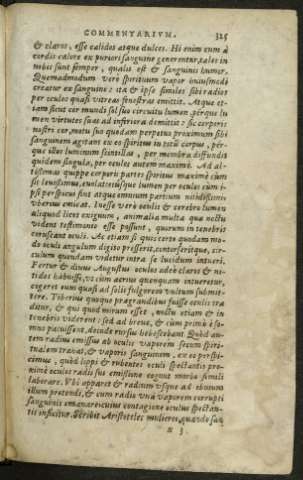 COMMENTARIVM. 325
& claros, esse calidos atque dulces. Hi enim cum à
cordis calore ex puriori sanguine generentur, tales in
nobis sunt semper, qualis est & sanguinis humor.
Quemadmodum verò spirituum vapor huiusmodi
creatur ex sanguine: ita & ipse similes sibi radios
per oculos quasi vitreas fenestras emittit. Atque et-
iam sicut cor mundi sol suo circuitu lumen, pérque lu
men virtutes suas ad inferiora demittit: sic corporis
nostri cor, motu suo quodam perpetuo proximum sibi
sanguinem agitans ex eo spiritus in totū corpus, pér-
que illos luminum scintillas, per membra diffundit
quidem singula, per oculos autem maximè. Ad al-
tissimas quippe corporis partes spiritus maximè cùm
sit leuissimus, euolat: eiusque lumen per oculos cùm i-
psi perspicui sint atque omnium partium nitidissimi
vberius emicat. Inesse verò oculis & cerebro lumen
aliquod licet exiguum, animalia multa quæ noctu
vident testimonio esse possunt, quorum in tenebris
coruscant oculi. Ac etiam si quis certo quodam mo-
do oculi angulum digito presserit, contorseritque, cir-
culum quendam videtur intra se lucidum intueri.
Fertur & diuus Augustus oculos adeò claros & ni-
tidos habuisse, vt cùm acrius quenquam intueretur,
cogeret eum quasi ad solis fulgorem vultum submit-
tere. Tiberius quoque prægrandibus fuisse oculis tra
ditur, & qui quod mirum esset, noctu etiam & in
tenebris viderent: sed ad breue, & cùm primò è so-
mno patuissent, deinde rursus hebescebant. Quòd au-
tem radius emissus ab oculis vaporem secum spiri-
tualem trahat, & vaporis sanguinem, ex eo perspi-
cimus, quòd lippi & rubentes oculi spectantis pro-
ximè oculos radij sui emissione cogunt morbo simili
laborare. Vbi apparet & radium vsque ad obuium
illum protendi, & cum radio vnà vaporem corrupti
sanguinis emanare, cuius contagione oculus spectan-
tis inficitur. Scribit Aristoteles mulieres, quando san